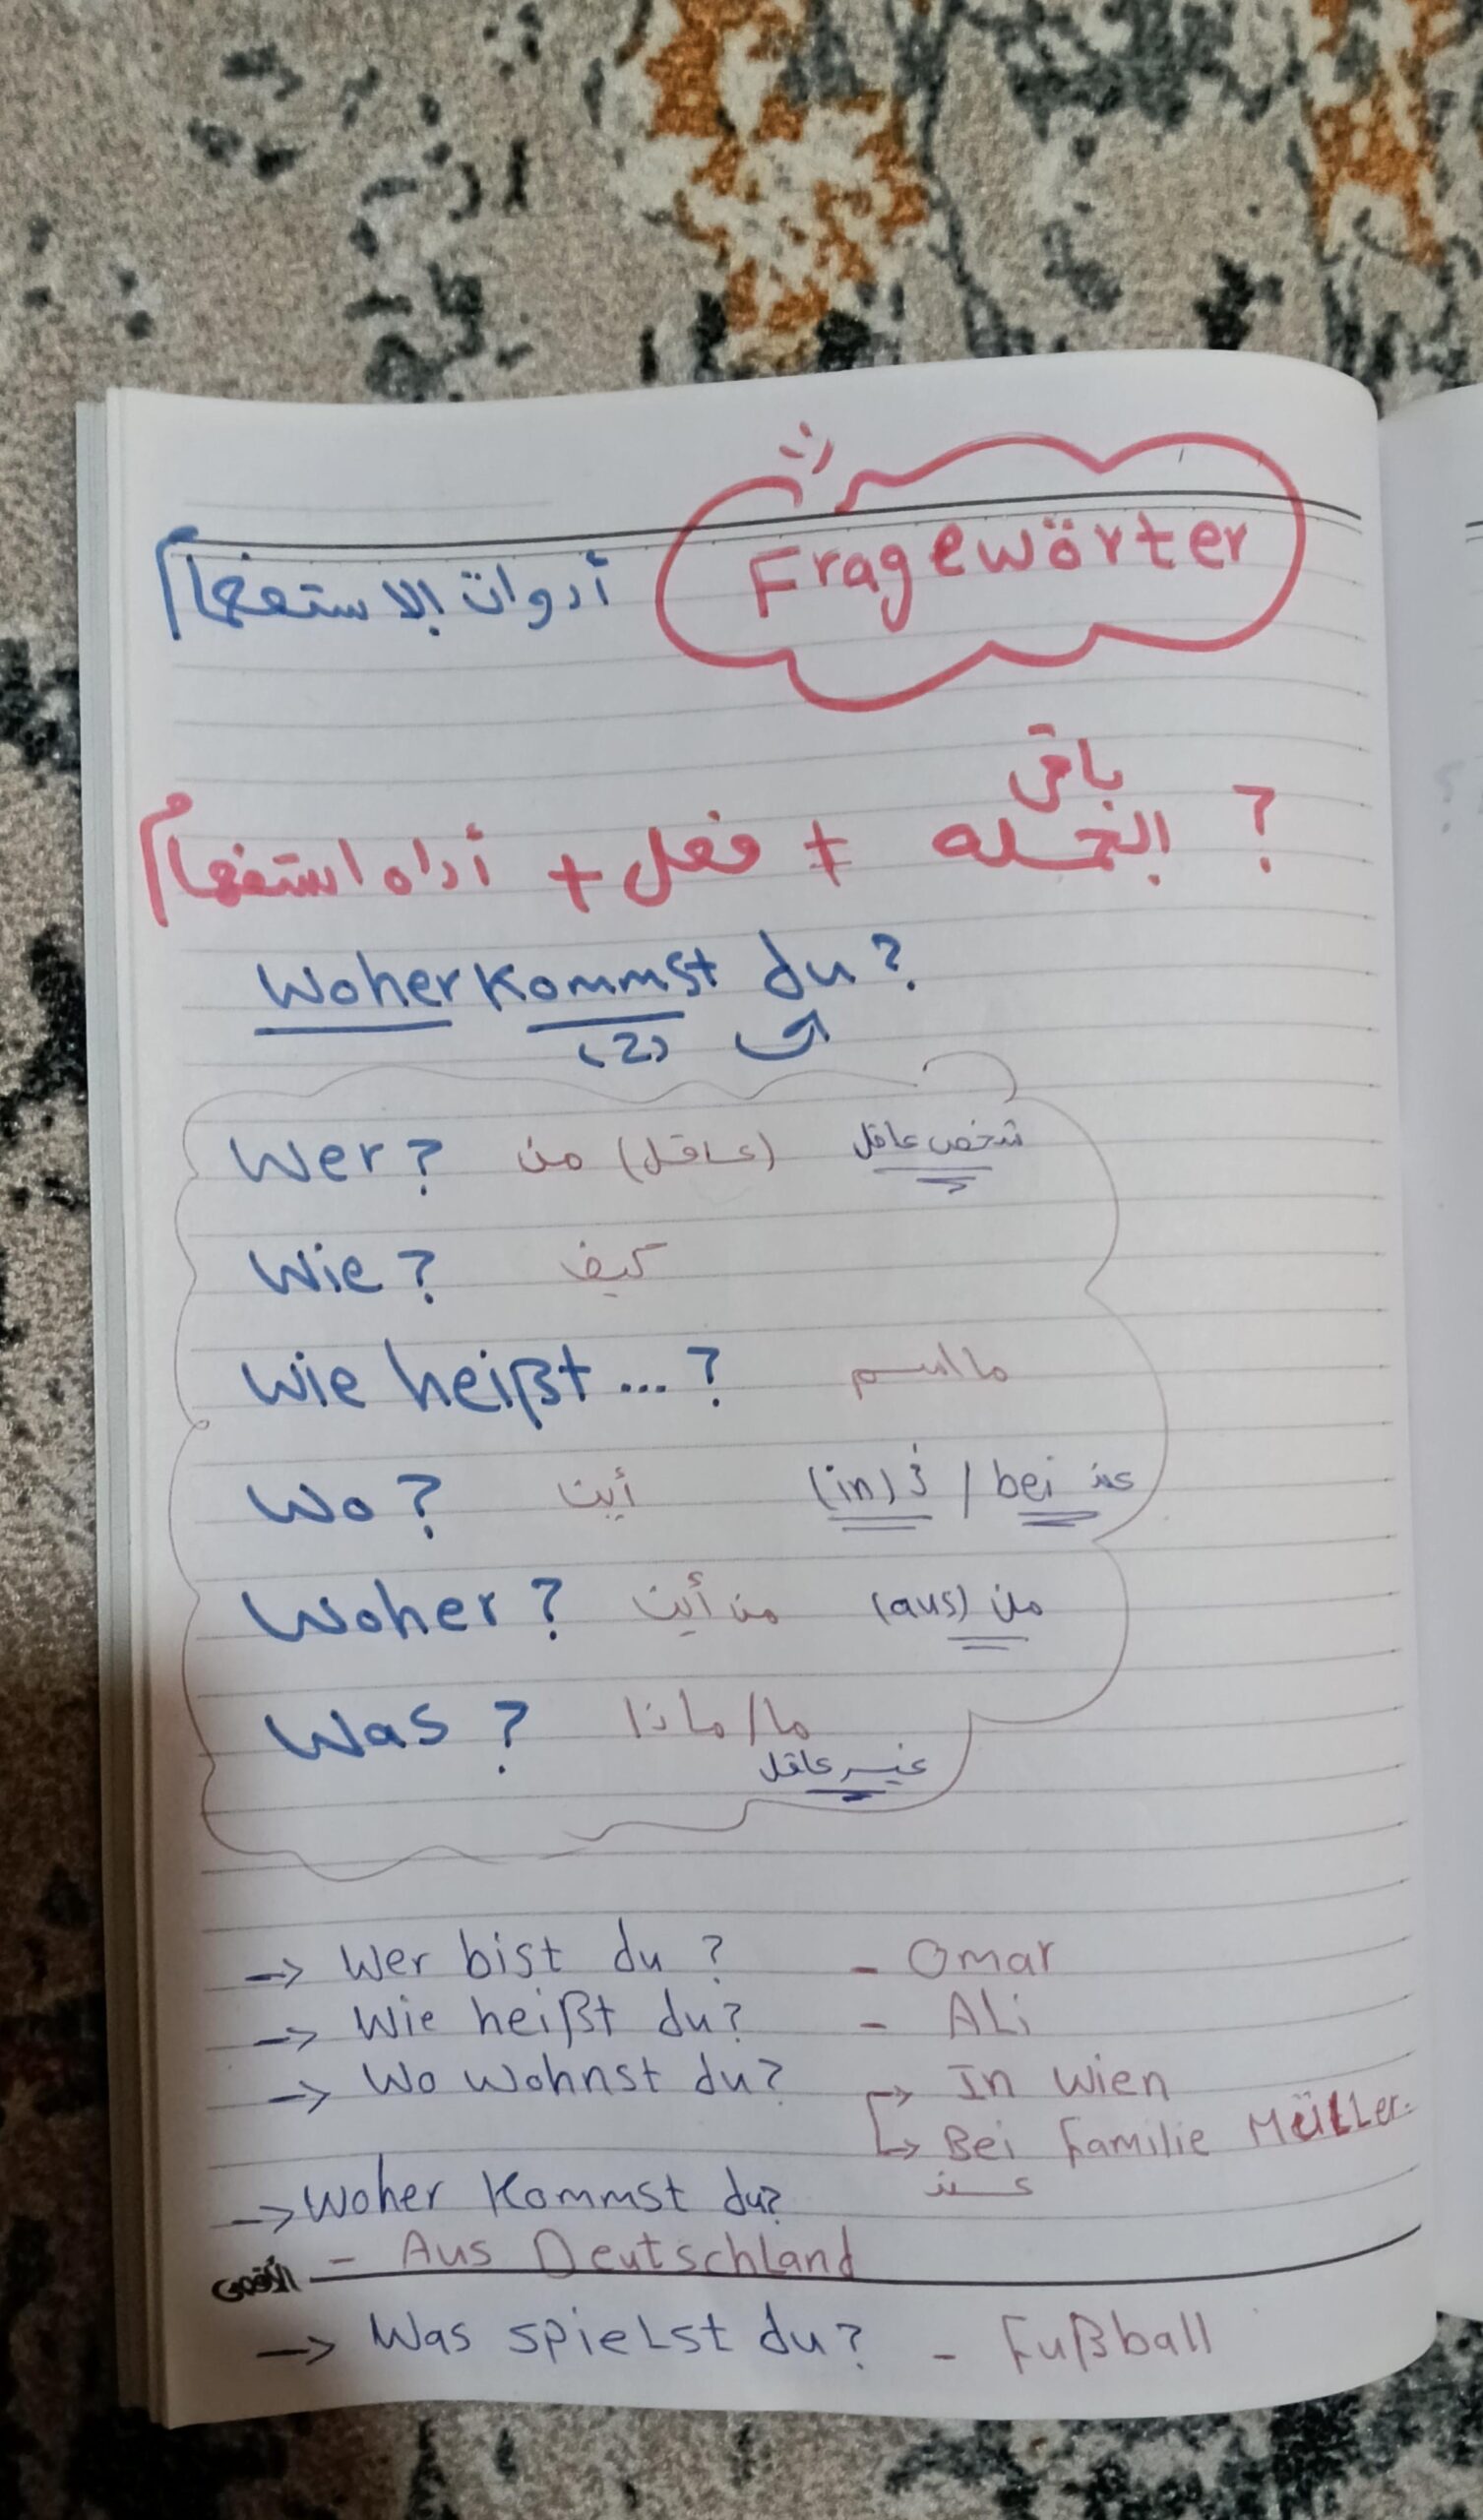 أدوات الاستفهام Fragewörter
أداه استفهام + فعل + باقى الجمله ?
Woher kommst du?
(2)
Wer? من (عاقل) شخص عاقل
Wie? كيف
Wie heißt ...? ما اسم
Wo? أين (in) في / bei عند
Woher? من أين (aus) من
Was? ما/ماذا
غير عاقل
→ Wer bist du? - Omar
→ Wie heißt du? - ALi
→ Wo wohnst du? → In Wien
→ Bei Familie MülLer.
عند
→ Woher kommst du?
- Aus DeutschLand
الأقصى
→ Was spieLst du? - Fußball